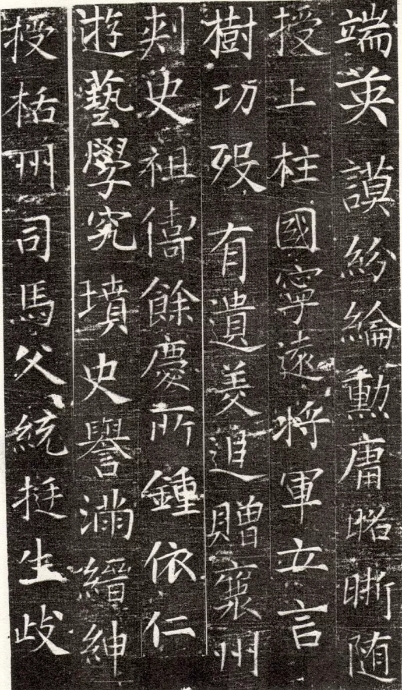 端英謨紛綸勳庸昭晣随
授上柱國寧遠将軍立言
樹功殁有遺美追贈襄州
刺史祖儔餘慶所鍾依仁
遊藝學究墳史譽滿縉紳
授栝州司馬父統挺生歧